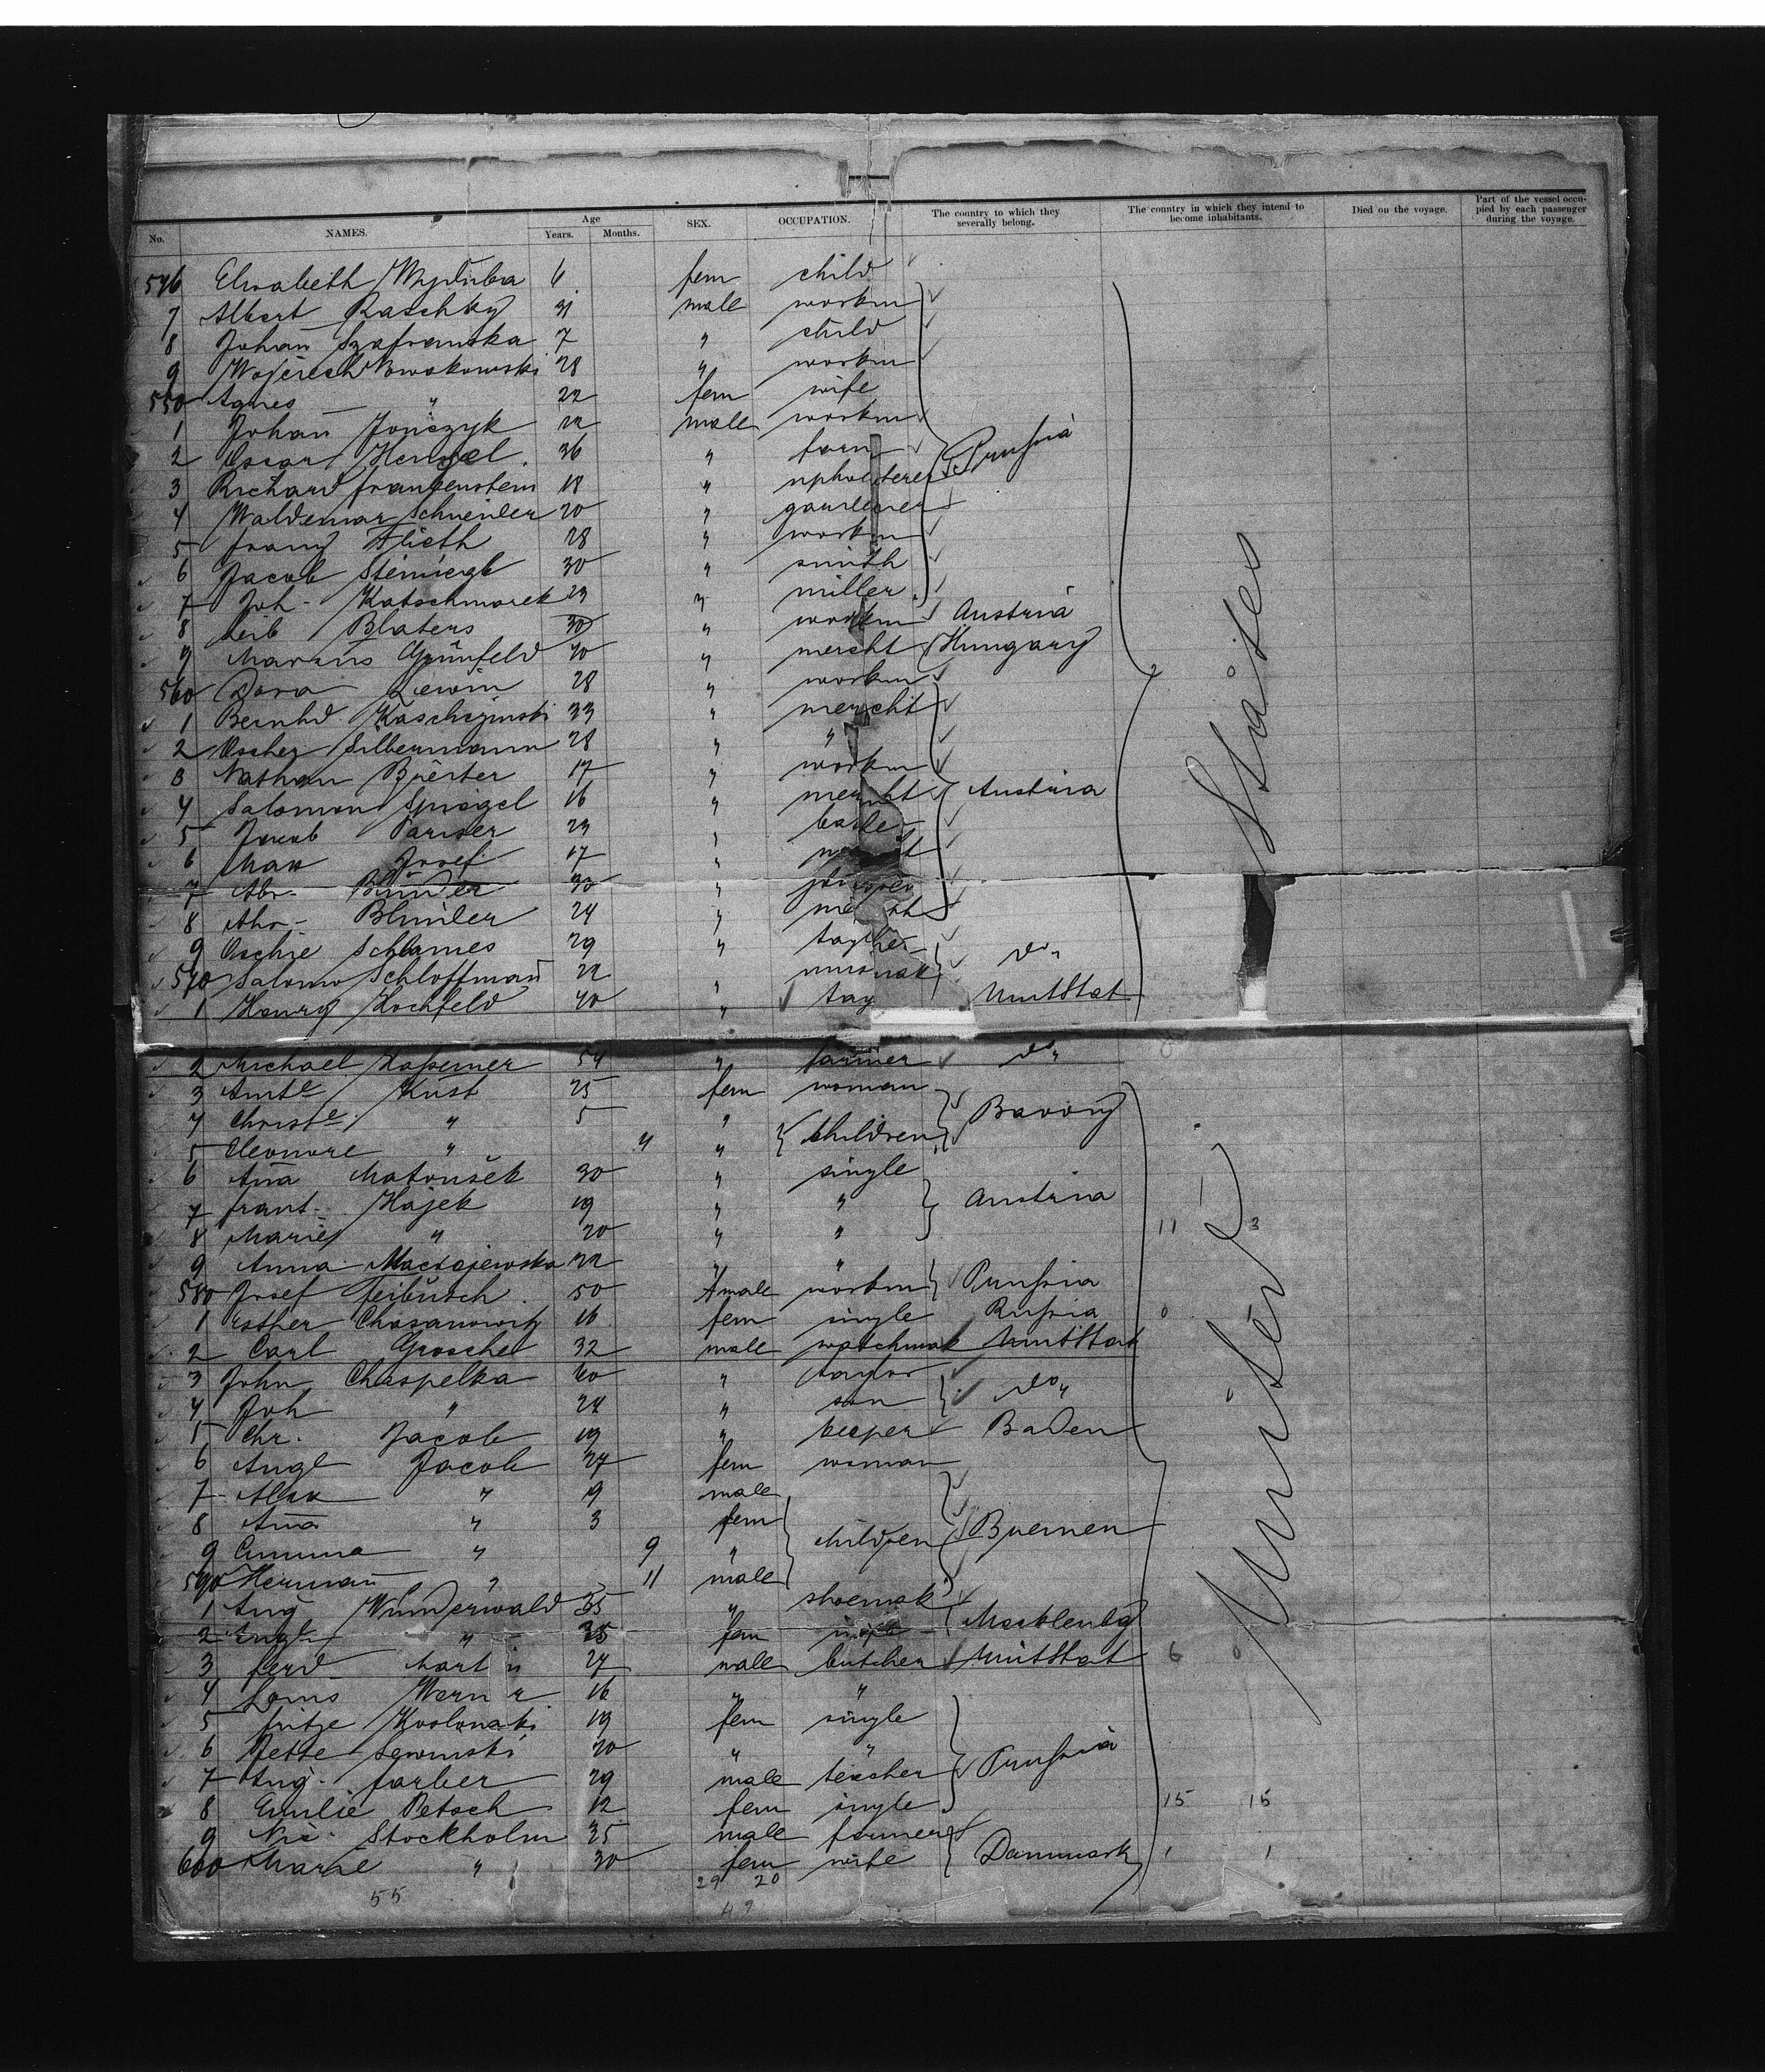 No. NAMES. Age Years. Months. SEX. OCCUPATION. The country to which they severally belong. The country in which they intend to become inhabitants. Died on the voyage. Part of the vessel occupied by each passenger during the voyage.
546 Elisabeth 6 fem child
7 Albert Raschky 31 male workm
8 Johan Szafranska 7 " child
9 Wojciech Nowakowski 28 " workm
550 Agnes " 22 fem wife
1 Johan Jonczyk 22 male workm
2 Oscar Hengel 36 " farm Prussia
3 Richard Frankenstein 18 " upholsterer
4 Waldemar Schneider 20 " gardener
5 Franz Flieth 28 " workm
6 Jacob 30 " smith
7 Joh. Katschmarek 23 " miller
8 Leib Blaters 30 " workm Austria
9 Marcus Grünfeld 40 " mercht Hungary
560 Dora Lewin 28 " workm
1 Bernhd. 33 " mercht
2 Oscher Silbermann 28 " "
3 Nathan 17 " workm
4 Salomon Spiegel 16 " mercht Austria
5 Jacob Pariser 23 "
6 Max Josef 17 "
7 Abr. Blinder 30 "
8 Abr. Blinder 24 "
9 Schames 29 " do"
570 Salomo Schloffman 22 "
1 Henry Hochfeld 40 " tay UnitStat
2 Michael 54 " farmer do"
3 Kust 25 fem woman
4 Christe " 5 " children Bavary
5 Eleonore " 4 "
6 Ana Matousek 30 " single
7 Frant. Hajek 19 " " Austria
8 Marie " 20 " " 11 3
9 Anna Maciejewska 22 " "
580 Josef 50 male workm Prussia
1 Esther Chasanowitz 16 fem single Russia 0
2 Carl Groschel 32 male watchmak UnitStat
3 John Chaspelka 60 " taylor
4 Joh " 24 " son do"
5 Chr. Jacob 19 " Baden
6 Jacob 27 fem woman
7 Alex " 9 male
8 Ana " 3 fem children Bremen
9 Emma " 9 "
590 Herman " 11 male
1 Aug Wunderwald 35 " shoemak Mecklenbg
2 " fem
3 Ferd Martin 27 male butcher UnitStat 6 0
4 Louis Werner 16 " "
5 Fritze 19 fem single
6 Jette Lewinski 20 " "
7 Aug. Farber 29 male teacher Prussia
8 Emilie Petsch 12 fem single 15 15
9 Nic. Stockholm 35 male farmer
600 Marie " 30 fem wife Danmark 1 1
29 20
55
49
United States